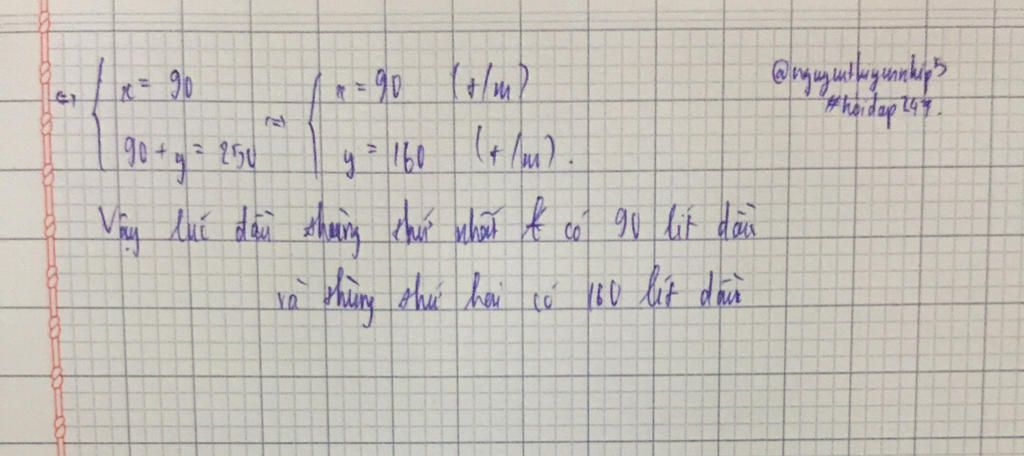 ⇔ { x = 90 ⇔ { x = 90 (t/m)
90 + y = 250 y = 160 (t/m).
@nguyenthuyennhip5
#hoidap247.
Vậy lúc đầu thùng thứ nhất có 90 lít dầu
và thùng thứ hai có 160 lít dầu